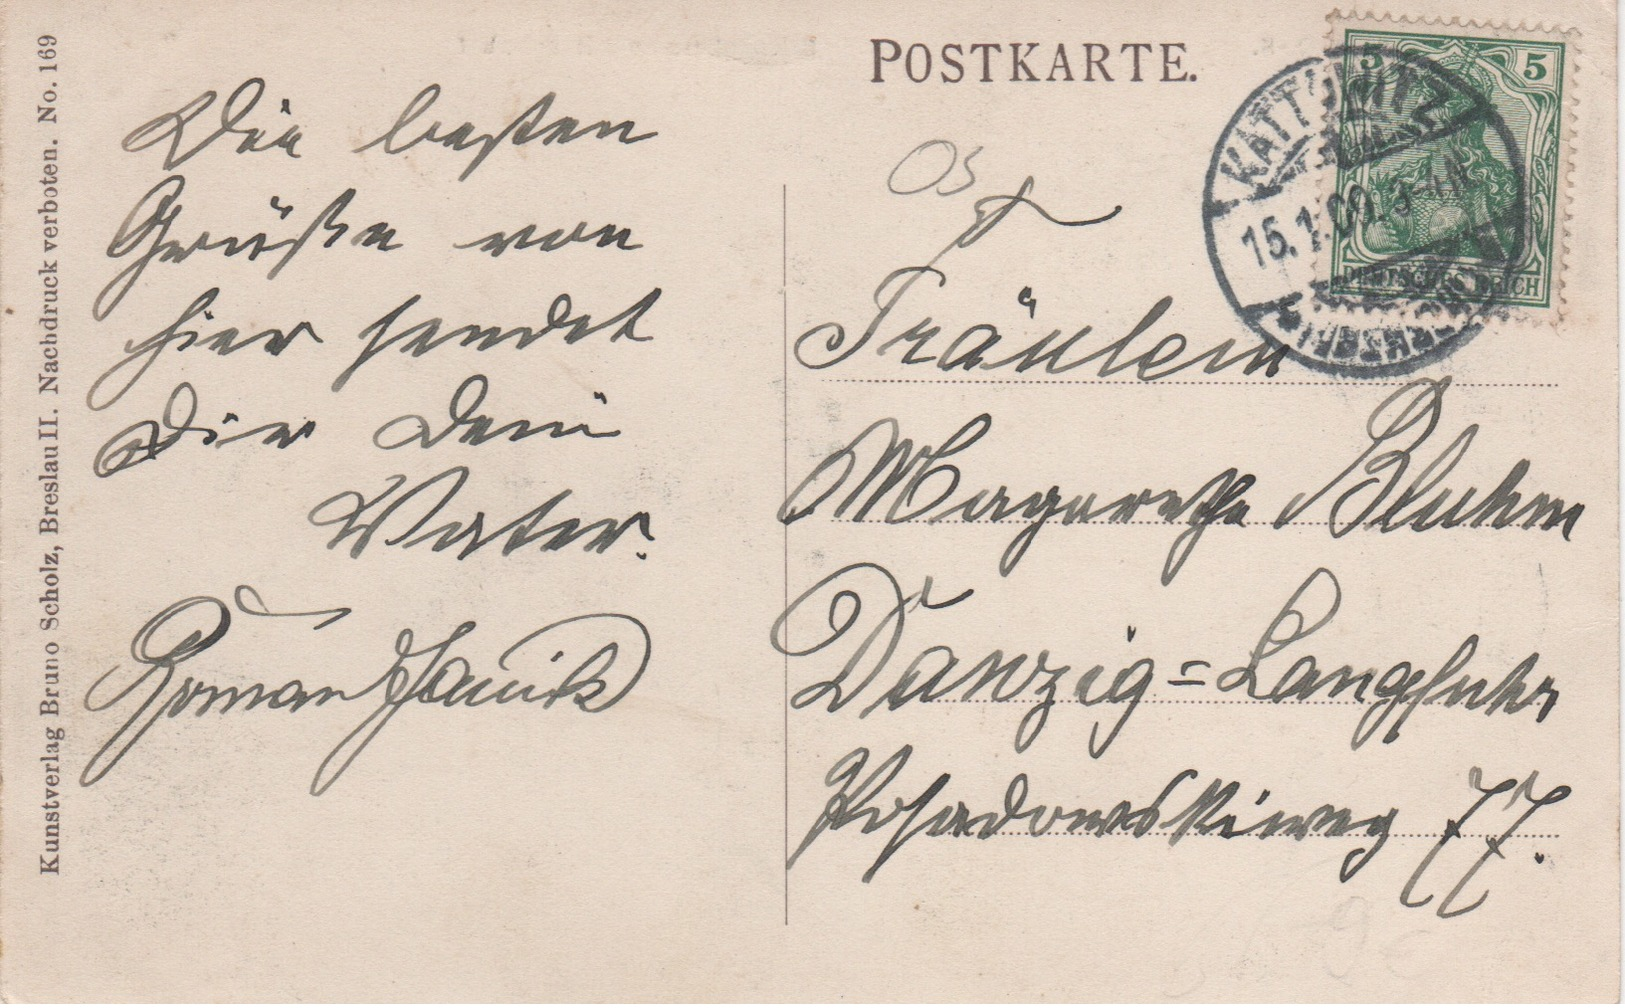 POSTKARTE.
5 5
KATTOWITZ
15.1.09.3
DEUTSCHES REICH
Die besten
Grüße von
hier sendet
Dir Dein
Vater.
Roman
Fräulein
Magarethe Bluhm
Danzig=Langfuhr
Posadowskiweg 77.
Kunstverlag Bruno Scholz, Breslau II. Nachdruck verboten. No. 169